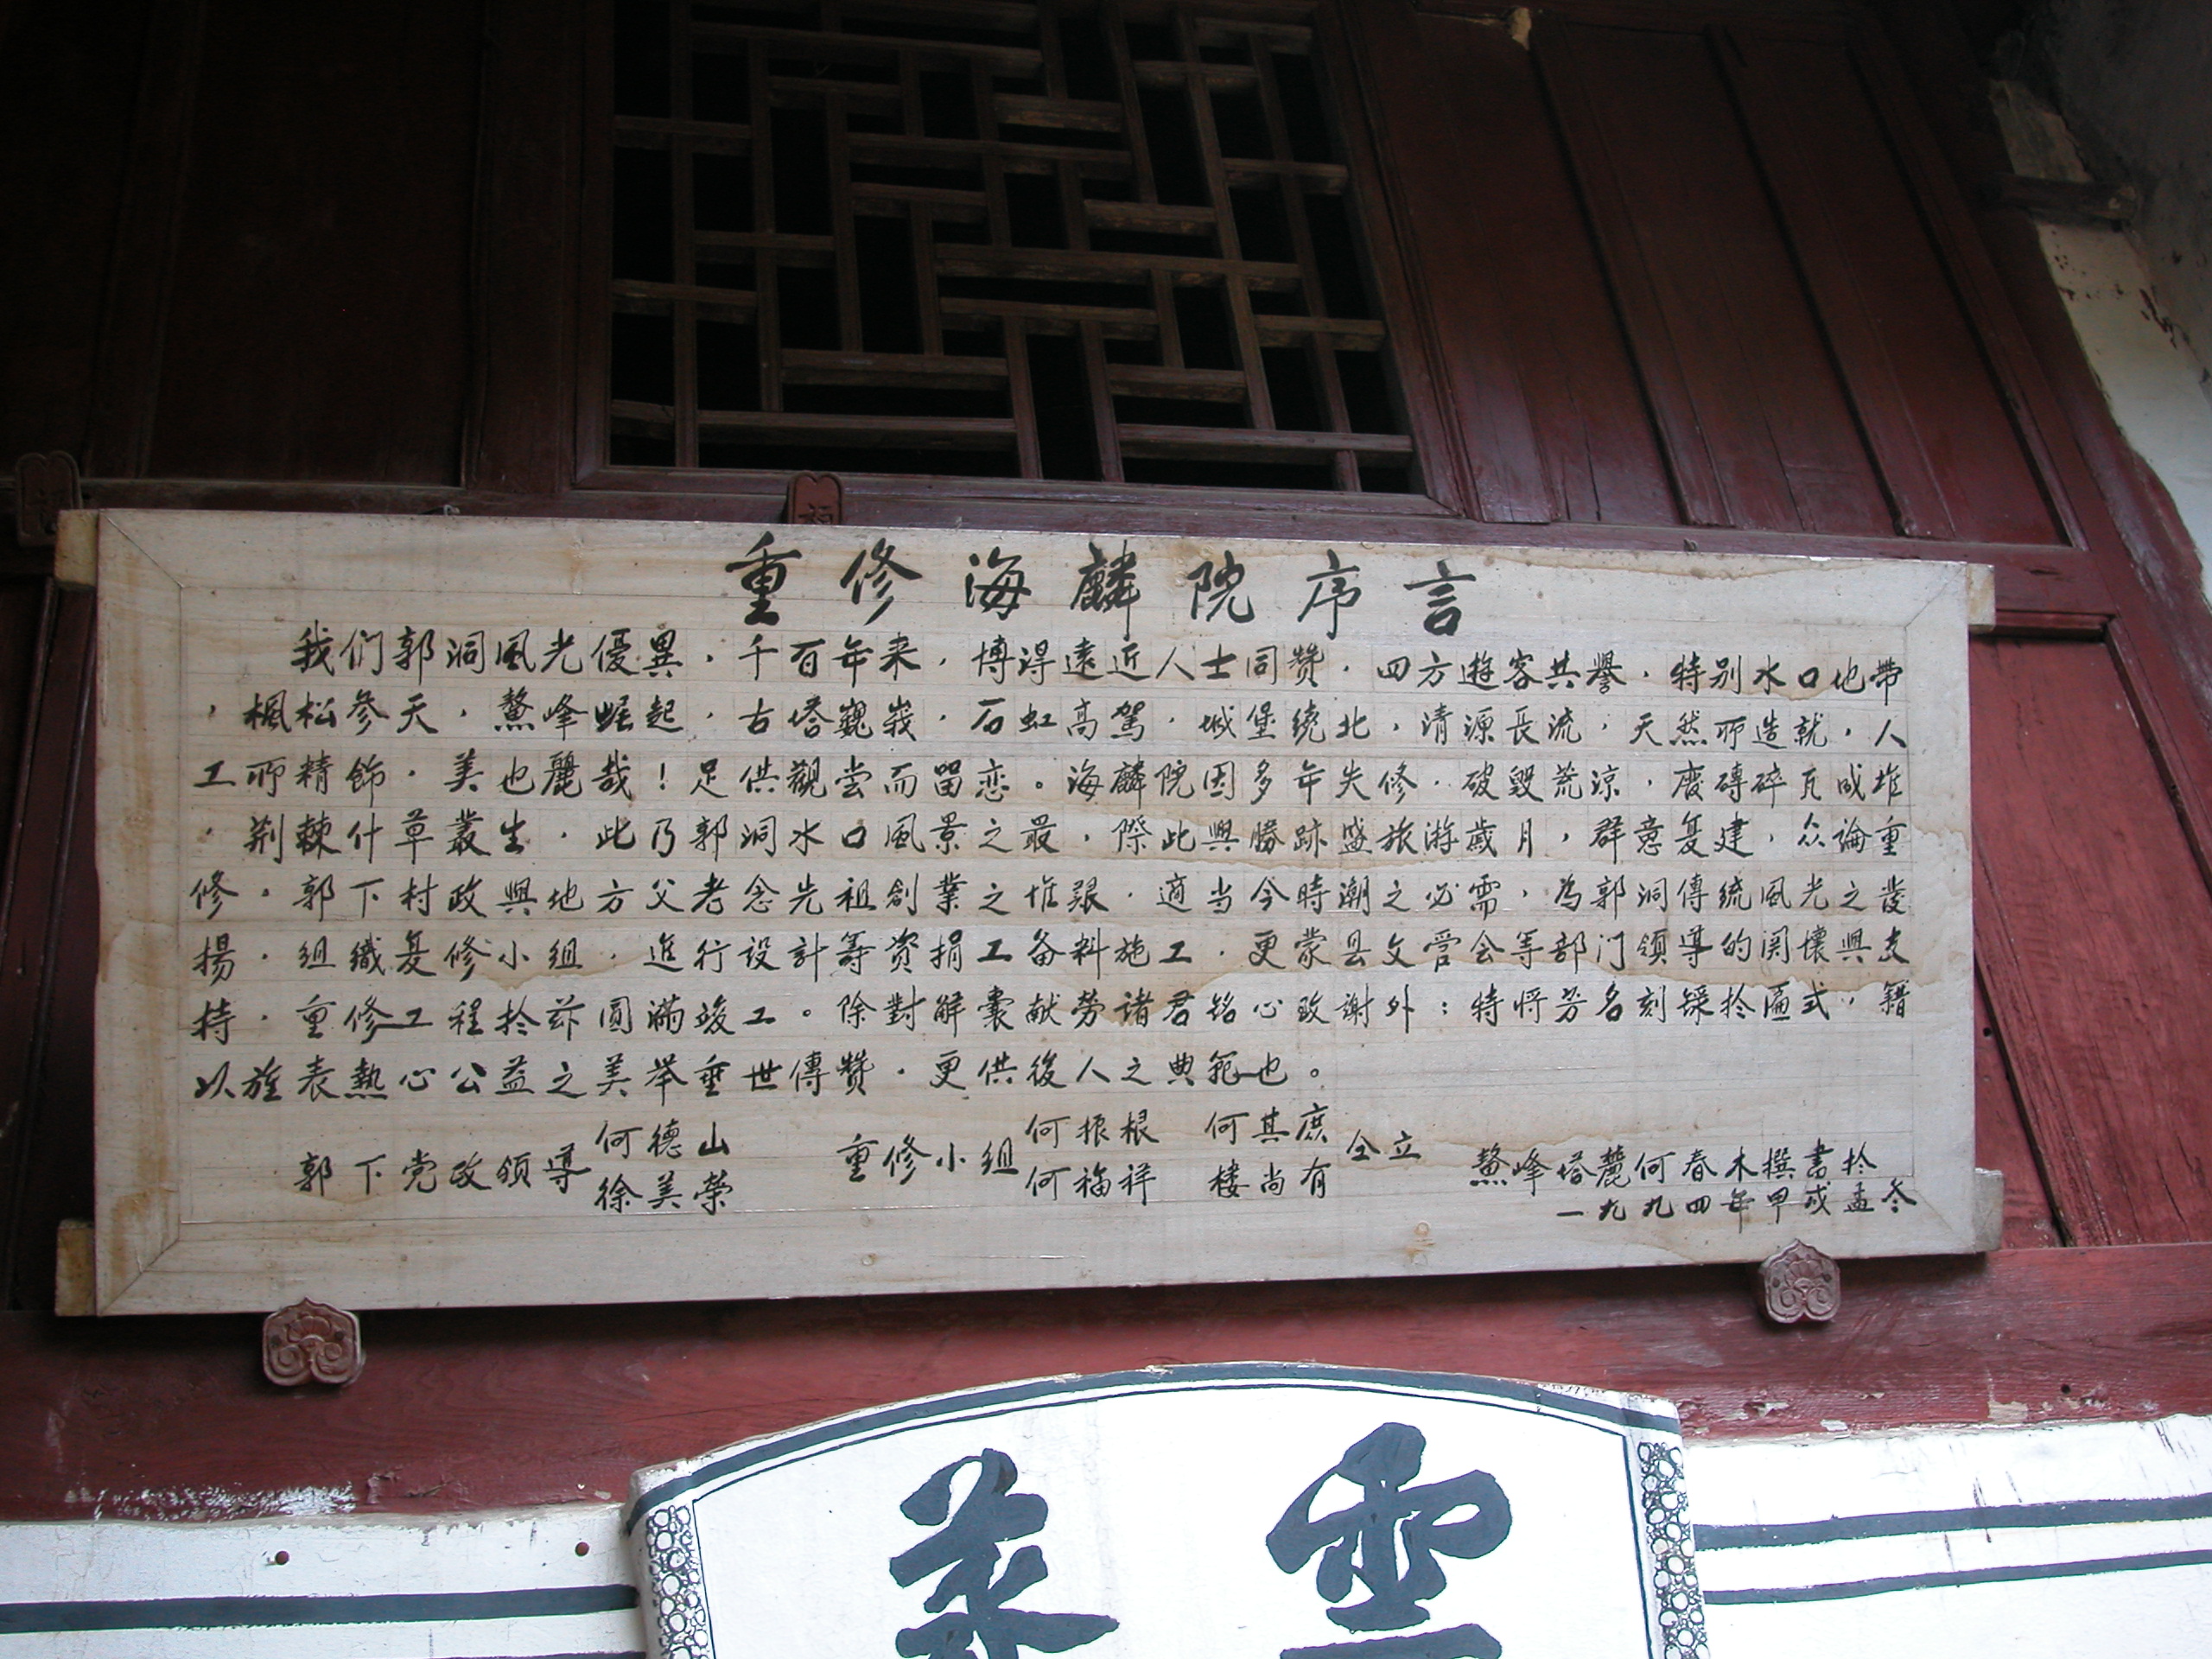 重修海麟院序言
我们郭洞風光優異，千百年来，博得遠近人士同贊，四方遊客共譽，特别水口地帶
，楓松參天，鰲峰崛起，古塔巍峩，石虹高駕，城堡繞北，清源長流，天然所造就，人
工所精飾，美也麗哉！足供觀尝而留恋。海麟院因多年失修，破毀荒涼，废磚碎瓦成堆
，荆棘什草叢生，此乃郭洞水口風景之最，際此興勝跡盛旅游歲月，群意复建，众論重
修。郭下村政與地方父老念先祖創業之惟艰，適当今時潮之必需，為郭洞傳統風光之發
揚，组織复修小组，進行設計筹资捐工备料施工，更蒙县文管会等部门領導的関懷與支
持，重修工程於兹圓滿竣工。除對解囊献劳诸君铭心致謝外：特将芳名刻録於匾式，籍
以旌表熱心公益之美举垂世傳贊，更供後人之典範也。
郭下党政領導 何德山 徐美荣 重修小组 何振根 何福祥 何其庶 楼尚有 仝立
鰲峰塔麓何春木撰書於
一九九四年甲戍孟冬